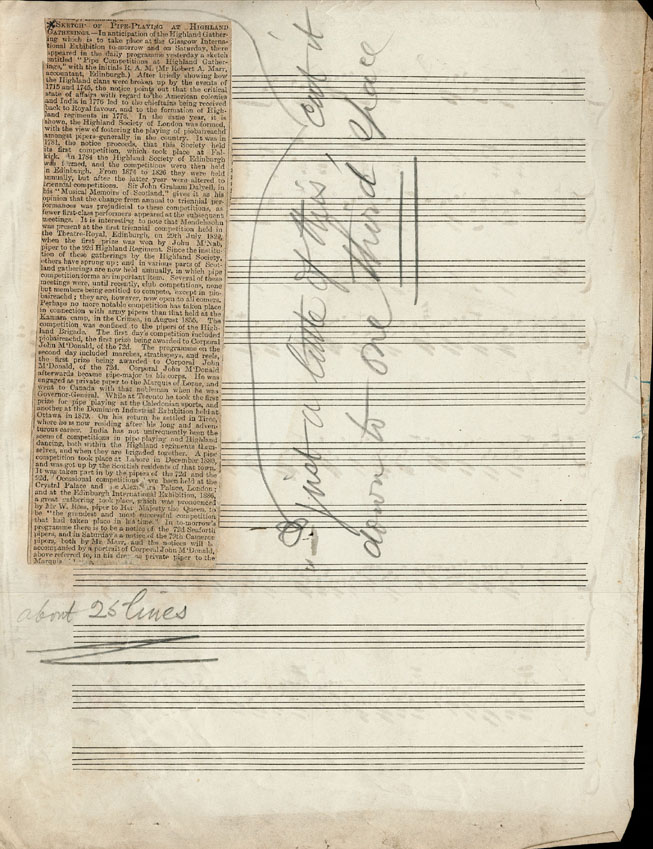 SKETCH OF PIPE-PLAYING AT HIGHLAND
GATHERINGS.—In anticipation of the Highland Gather-
ing which is to take place at the Glasgow Interna-
tional Exhibition to-morrow and on Saturday, there
appeared in the daily programme yesterday a sketch
entitled "Pipe Competitions at Highland Gather-
ings," with the initials R. A. M. (Mr Robert A. Marr,
accountant, Edinburgh.) After briefly showing how
the Highland clans were broken up by the events of
1715 and 1745, the notice points out that the critical
state of affairs with regard to the American colonies
and India in 1776 led to the chieftains being received
back to Royal favour, and to the formation of High-
land regiments in 1778. In the same year, it is
shown, the Highland Society of London was formed,
with the view of fostering the playing of piobaireachd
amongst pipers generally in the country. It was in
1781, the notice proceeds, that this Society held
its first competition, which took place at Fal-
kirk. In 1784 the Highland Society of Edinburgh
was formed, and the competitions were then held
in Edinburgh. From 1784 to 1826 they were held
annually, but after the latter year were altered to
triennial competitions. Sir John Graham Dalyell, in
his "Musical Memoirs of Scotland," gives it as his
opinion that the change from annual to triennial per-
formances was prejudicial to these competitions, as
fewer first-class performers appeared at the subsequent
meetings. It is interesting to note that Mendelssohn
was present at the first triennial competition held in
the Theatre-Royal, Edinburgh, on 29th July 1829,
when the first prize was won by John M'Nab,
piper to the 92d Highland Regiment. Since the institu-
tion of these gatherings by the Highland Society,
others have sprung up; and in various parts of Scot-
land gatherings are now held annually, in which pipe
competition forms an important item. Several of these
meetings were, until recently, club competitions, none
but members being entitled to compete, except in pio-
baireachd; they are, however, now open to all comers.
Perhaps no more notable competition has taken place
in connection with army pipers than that held at the
Kamara camp, in the Crimea, in August 1855. The
competition was confined to the pipers of the High-
land Brigade. The first day's competition included
piobaireachd, the first prize being awarded to Corporal
John M'Donald, of the 72d. The programme on the
second day included marches, strathspeys, and reels,
the first prize being awarded to Corporal John
M'Donald, of the 72d. Corporal John M'Donald
afterwards became pipe-major to his corps. He was
engaged as private piper to the Marquis of Lorne, and
went to Canada with that nobleman when he was
Governor-General. While at Toronto he took the first
prize for pipe playing at the Caledonian sports, and
another at the Dominion Industrial Exhibition held at
Ottawa in 1879. On his return he settled in Tiree,
where he is now residing after his long and adven-
turous career. India has not unfrequently been the
scene of competitions in pipe playing and Highland
dancing, both within the Highland regiments them-
selves, and when they are brigaded together. A pipe
competition took place at Lahore in December
and was got up by the Scottish residents of that town.
It was taken part in by the pipers of the 72d and the
92d. Occasional competitions have been held at the
Crystal Palace and the Alexandra Palace, London;
and at the Edinburgh International Exhibition, 1886,
a great gathering took place, which was pronounced
by Mr W. Ross, piper to Her Majesty the Queen, to
be "the grandest and most successful competition
that had taken place in his time." In to-morrow's
programme there is to be a notice of the 72d Seaforth
pipers, and in Saturday's a notice of the 79th Cameron
pipers, both by Mr Marr, and the notices will be
accompanied by a portrait of Corporal John M'Donald,
above referred to, in his dress as private piper to the
Marquis
just a little of this, cut it
down to one third space
about 25 lines